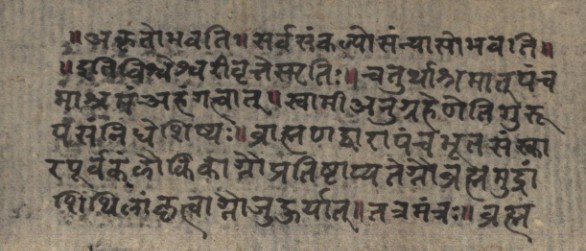 ॥अकृतोभवति॥सर्वसंकल्पोसंन्यासोभवेति॥
॥इतिविश्वेश्वरीवृत्तेसरतिः॥चतुर्थाश्रमात्पंच
माश्रमंअहंगत्वात्॥स्वामीअनुग्रहेणेतिगुरू
पंसंनिधेशिष्यः॥ब्राह्मणद्वारापंचभूतसंस्का
रपूर्वकंलौकिकाग्नौप्रतिष्ठाप्यतेग्नौब्रह्ममुद्रां
शिथिलांकृत्वाग्नौजुहुर्यात्॥तत्रमंत्रः॥ब्रह्म